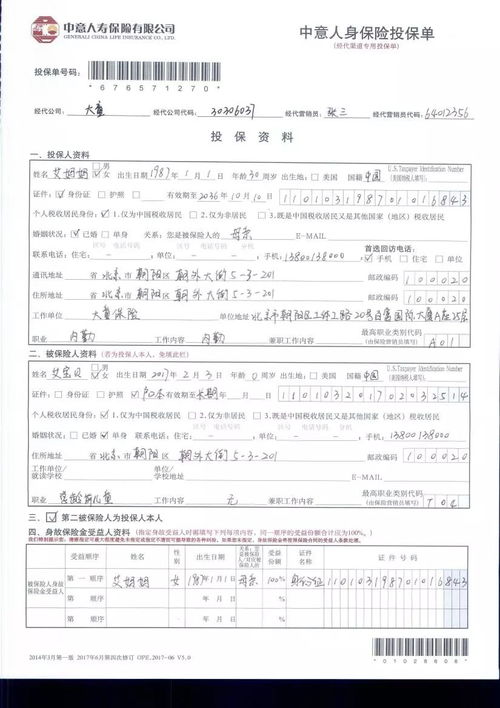 中意人寿保险有限公司
GENERALI CHINA LIFE INSURANCE CO., LTD.
中意人身保险投保单
(经代渠道专用投保单)
投保单号码:
*6765571270*
经代公司: 大童 经代公司代码: 30306037 经代营销员: 张三 经代营销员代码: 64012356
投保资料
一、投保人资料
姓名 艾姐姐 男 女 出生日期 1987年1月1日 年龄30周岁 出生地: 美国 国籍 中国 U.S.Taxpayer Identification Number
证件: 身份证 护照 有效期至 2036年10月10日 110103198701016843
个人税收居民身份: 1.仅为中国税收居民 2.仅为非居民 3.既是中国税收居民又是其他国家(地区)税收居民
婚姻状况: 已婚 单身 关系: 您是被保险人的 母亲 E-MAIL
区号 电话号码 区号 电话号码 分机 首选回访电话:
联系电话: 住宅: 单位: 手机: 13800138000 住宅 单位
通讯地址 省 北京 市 朝阳 区 朝外大街5-3-201 邮政编码 100020
住所地址 省 北京 市 朝阳 区 朝外大街5-3-201 邮政编码 100020
工作单位 大童保险 单位地址
职业 内勤 工作内容 内勤 兼职工作内容 最高职业类别代码 (由保险营销员填写) A01
二、被保险人资料 (若为投保人本人, 免填此栏)
姓名 艾宝贝 男 女 出生日期 2017年2月3日 年龄0周岁 出生地: 美国 国籍 中国 U.S.Taxpayer Identification Number
证件: 身份证 护照 户口本 有效期至 长期 110103201702032514
个人税收居民身份: 1.仅为中国税收居民 2.仅为非居民 3.既是中国税收居民又是其他国家(地区)税收居民
区号 电话号码 区号 电话号码 分机
婚姻状况: 已婚 单身 联系电话: 住宅: 单位: 手机: 13800138000
住所地址 省 北京 市 朝阳 区 朝外大街5-3-201 邮政编码 100020
工作单位/就读学校 单位地址/学校地址 E-MAIL
职业 学龄前儿童 工作内容 无 兼职工作内容 最高职业类别代码 (由保险营销员填写)
三、第二被保险人为投保人本人
四、身故保险金受益人资料 (指定身故受益人时需填写下列每项内容, 同一顺序的受益份额合计应为100%。)
受益顺序 姓名 性别 出生日期 受益份额 证件名称 证件号码
被保险人身故保险金受益人 第一顺序 艾姐姐 女 1987年1月1日 母亲 100% 身份证 110103198701016843
第 顺序 年 月 日 %
第 顺序 年 月 日 %
2014年3月第一版 2017年6月第四次修订 OPE.2017-06 V5.0
*01028608*